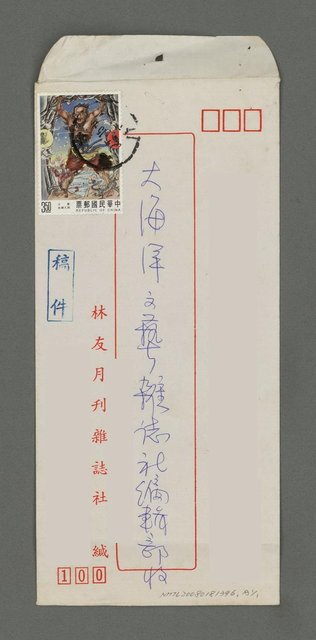 中華民國郵票
REPUBLIC OF CHINA
350
稿件
大海洋文藝雜誌社編輯部收
林友月刊雜誌社 緘
100
NMTL20080181996, AY,